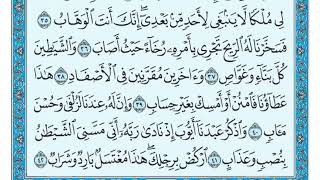 لِى مُلْكًا لَّا يَنۢبَغِى لِأَحَدٍ مِّنۢ بَعْدِىٓ إِنَّكَ أَنتَ ٱلْوَهَّابُ ٣٥
فَسَخَّرْنَا لَهُ ٱلرِّيحَ تَجْرِى بِأَمْرِهِۦ رُخَآءً حَيْثُ أَصَابَ ٣٦ وَٱلشَّيَٰطِينَ
كُلَّ بَنَّآءٍ وَغَوَّاصٍ ٣٧ وَءَاخَرِينَ مُقَرَّنِينَ فِى ٱلْأَصْفَادِ ٣٨ هَٰذَا
عَطَآؤُنَا فَٱمْنُنْ أَوْ أَمْسِكْ بِغَيْرِ حِسَابٍ ٣٩ وَإِنَّ لَهُۥ عِندَنَا لَزُلْفَىٰ وَحُسْنَ
مَـَٔابٍ ٤٠ وَٱذْكُرْ عَبْدَنَآ أَيُّوبَ إِذْ نَادَىٰ رَبَّهُۥٓ أَنِّى مَسَّنِىَ ٱلشَّيْطَٰنُ
بِنُصْبٍ وَعَذَابٍ ٤١ ٱرْكُضْ بِرِجْلِكَ هَٰذَا مُغْتَسَلٌۢ بَارِدٌ وَشَرَابٌ ٤٢